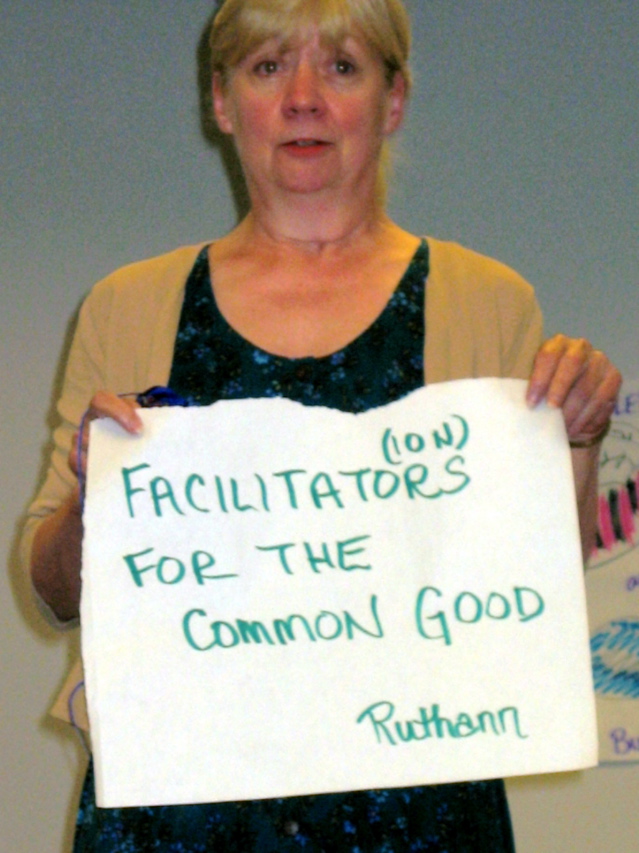 (ION)
FACILITATORS
FOR THE
COMMON GOOD
Ruthann